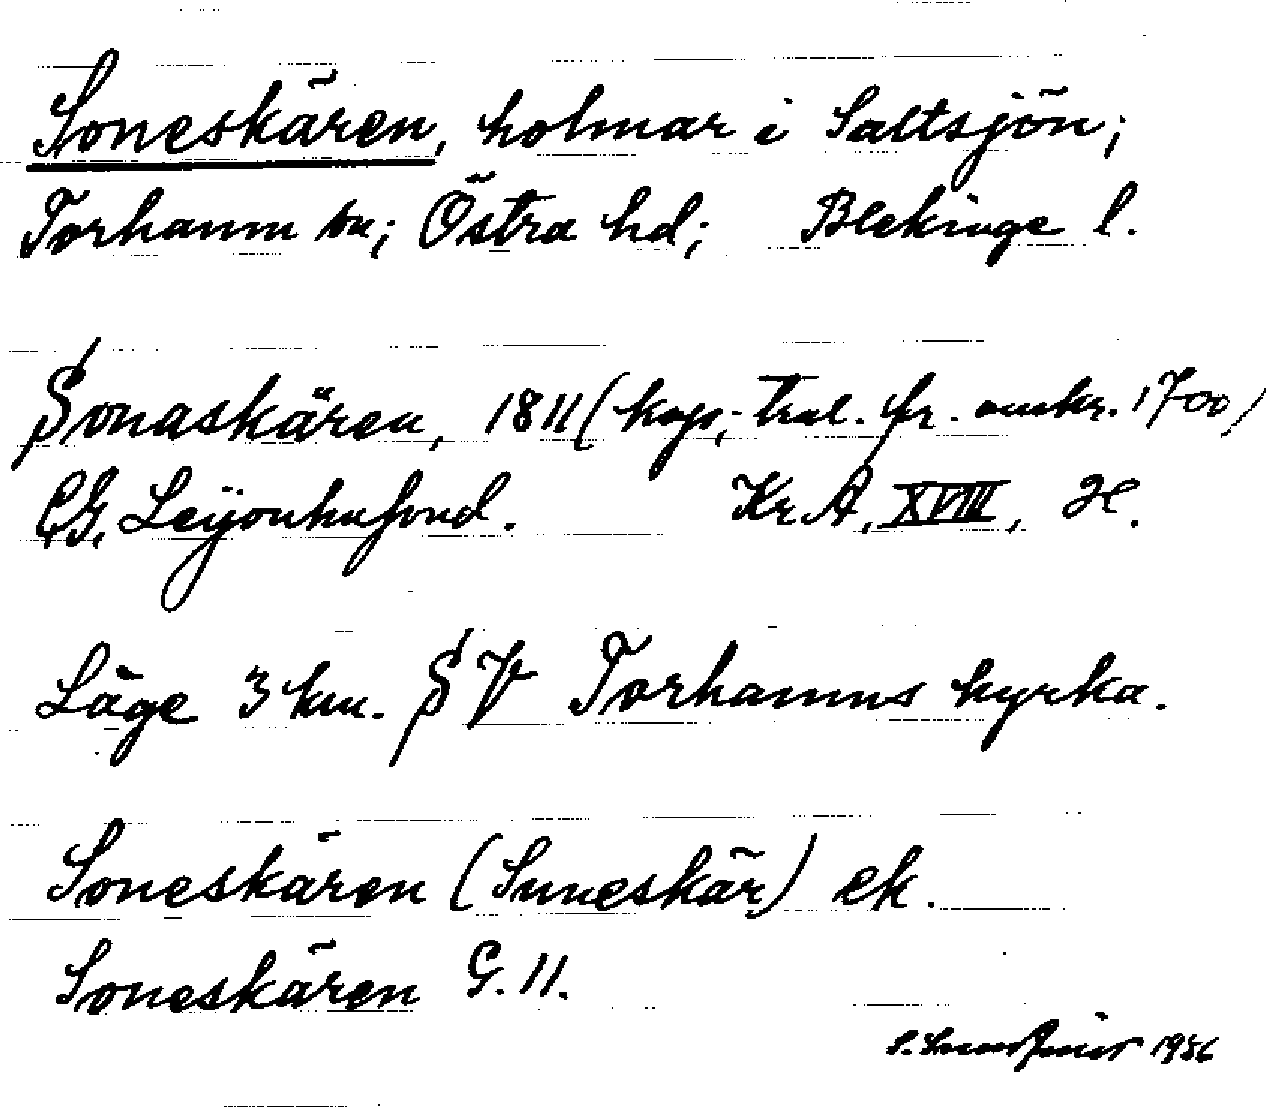 Soneskären, holmar i Saltsjön;
Torhamn sn; Östra hd; Blekinge l.
Sonaskären, 1811 (kop; trol. fr. omkr. 1700)
CG. Leijonhufvud. Kr A, XVIII, 2
Läge 3 km. SV Torhamns kyrka.
Soneskären (Suneskär) ek.
Soneskären G. 11.
1956